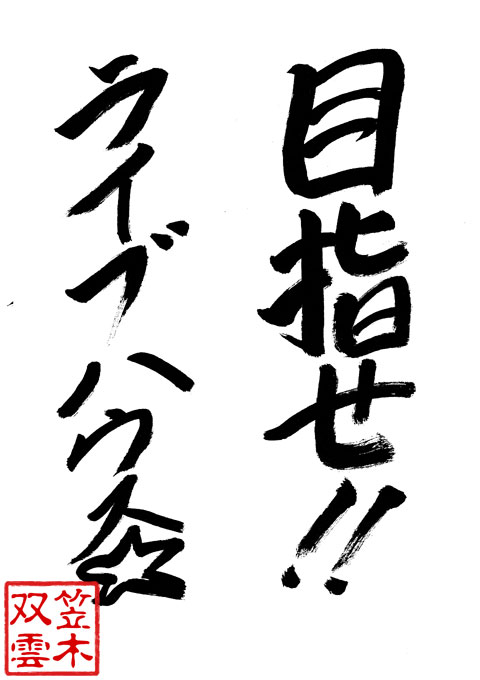 目指せ!!
ライブハウス☆
笠木
双雲